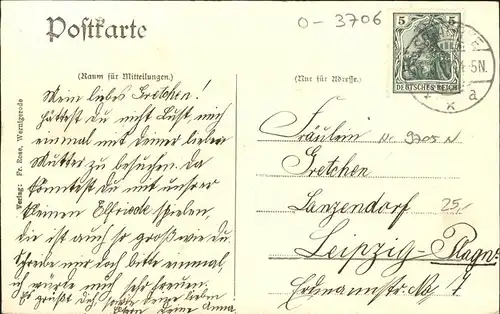 Postkarte
O-3706
(Raum für Mitteilungen.)
(Nur für Adresse.)
5 5
DEUTSCHES REICH
5N.
a
Verlag: Fr. Rose, Wernigerode
Mein liebes Gretchen!
hättest Du nicht Lust, mich
einmal mit Deiner lieben
Mutter zu besuchen. Da
könntest Du mit unserer
kleinen Elfriede spielen,
die ist auch so groß wie Du.
Schreibe mir doch bitte einmal,
ich würde mich sehr freuen.
Es grüßt Dich sowie Deine lieben
Eltern Deine Anna
Fräulein
Gretchen
Lanzendorf
Leipzig-Plagw.
Erdmannstr. No. 7
25,-